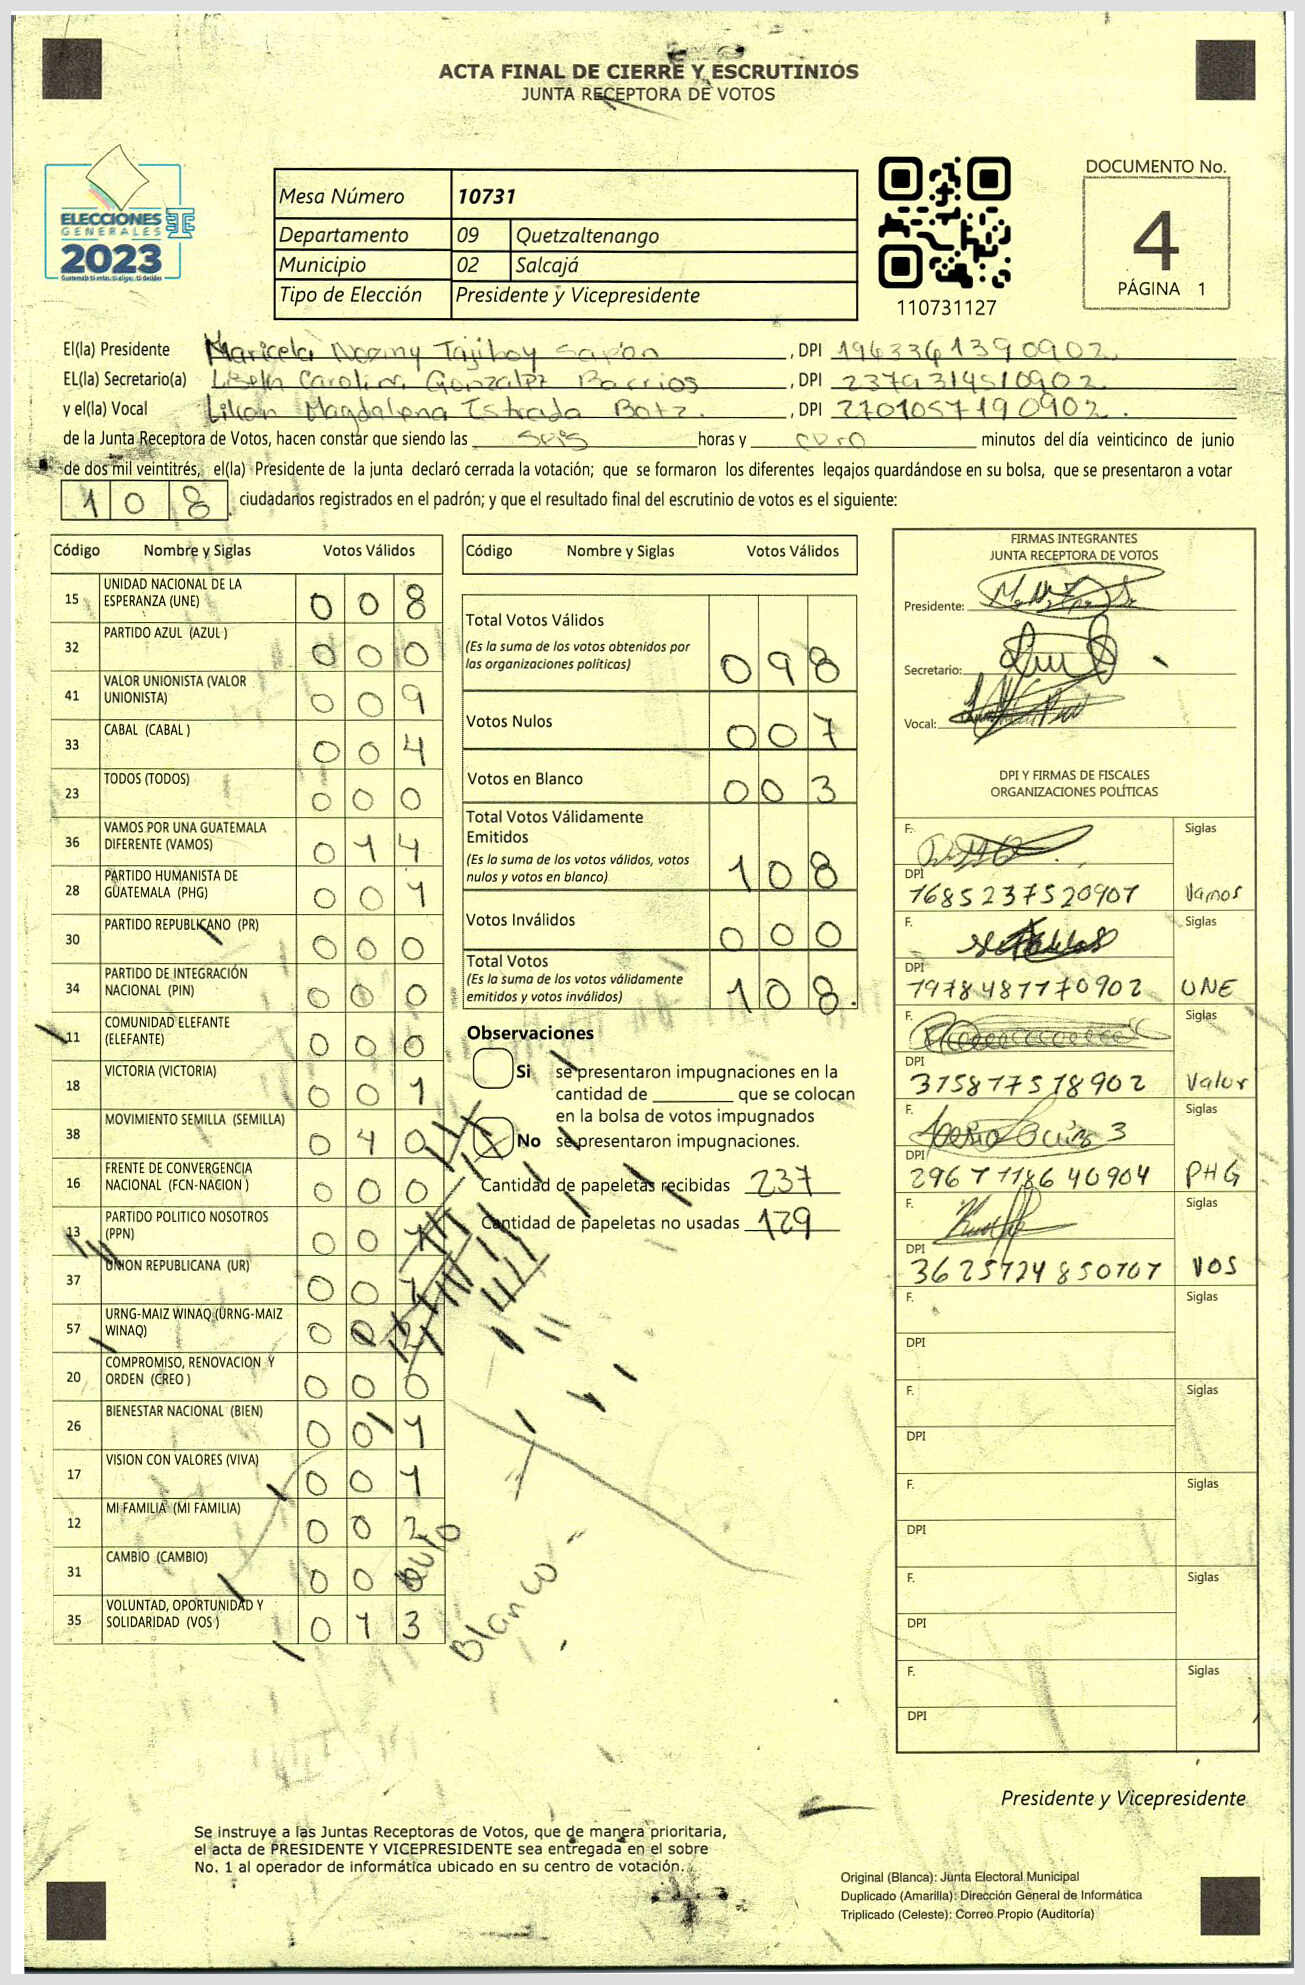 ACTA FINAL DE CIERRE Y ESCRUTINIOS
JUNTA RECEPTORA DE VOTOS
ELECCIONES
GENERALES
2023
Mesa Número 10731
Departamento 09 Quetzaltenango
Municipio 02 Salcajá
Tipo de Elección Presidente y Vicepresidente
110731127
DOCUMENTO No.
4
PÁGINA 1
El(la) Presidente Maricela Noemy Tajiboy Sapón, DPI 1963361390902
EL(la) Secretario(a) Liseth Carolina Gonzalez Barrios, DPI 2379314510902
y el(la) Vocal Lilian Magdalena Estrada Botz, DPI 2701057190902
de la Junta Receptora de Votos, hacen constar que siendo las seis horas y cero minutos del día veinticinco de junio
de dos mil veintitrés, el(la) Presidente de la junta declaró cerrada la votación; que se formaron los diferentes legajos quardándose en su bolsa, que se presentaron a votar
108 ciudadanos registrados en el padrón; y que el resultado final del escrutinio de votos es el siguiente:
Código Nombre y Siglas Votos Válidos
15 UNIDAD NACIONAL DE LA ESPERANZA (UNE) 0 0 8
32 PARTIDO AZUL (AZUL ) 0 0 0
41 VALOR UNIONISTA (VALOR UNIONISTA) 0 0 9
33 CABAL (CABAL ) 0 0 4
23 TODOS (TODOS) 0 0 0
36 VAMOS POR UNA GUATEMALA DIFERENTE (VAMOS) 0 1 4
28 PARTIDO HUMANISTA DE GUATEMALA (PHG) 0 0 1
30 PARTIDO REPUBLICANO (PR) 0 0 0
34 PARTIDO DE INTEGRACIÓN NACIONAL (PIN) 0 0 0
11 COMUNIDAD ELEFANTE (ELEFANTE) 0 0 0
18 VICTORIA (VICTORIA) 0 0 1
38 MOVIMIENTO SEMILLA (SEMILLA) 0 4 0
16 FRENTE DE CONVERGENCIA NACIONAL (FCN-NACION ) 0 0 0
13 PARTIDO POLITICO NOSOTROS (PPN) 0 0 1
37 UNION REPUBLICANA (UR) 0 0 1
57 URNG-MAIZ WINAQ (URNG-MAIZ WINAQ) 0 0 2
20 COMPROMISO, RENOVACION Y ORDEN (CREO ) 0 0 0
26 BIENESTAR NACIONAL (BIEN) 0 0 1
17 VISION CON VALORES (VIVA) 0 0 1
12 MI FAMILIA (MI FAMILIA) 0 0 2
31 CAMBIO (CAMBIO) 0 0 0
35 VOLUNTAD, OPORTUNIDAD Y SOLIDARIDAD (VOS ) 0 1 3
Nulo
Blanco
Código Nombre y Siglas Votos Válidos
Total Votos Válidos 0 9 8
(Es la suma de los votos obtenidos por
las organizaciones políticas)
Votos Nulos 0 0 7
Votos en Blanco 0 0 3
Total Votos Válidamente
Emitidos 1 0 8
(Es la suma de los votos válidos, votos
nulos y votos en blanco)
Votos Inválidos 0 0 0
Total Votos 1 0 8
(Es la suma de los votos válidamente
emitidos y votos inválidos)
Observaciones
Si se presentaron impugnaciones en la
cantidad de ________ que se colocan
en la bolsa de votos impugnados
No se presentaron impugnaciones.
Cantidad de papeletas recibidas 237
Cantidad de papeletas no usadas 129
FIRMAS INTEGRANTES
JUNTA RECEPTORA DE VOTOS
Presidente:
Secretario:
Vocal:
DPI Y FIRMAS DE FISCALES
ORGANIZACIONES POLÍTICAS
F. Siglas
DPI 1685237520901 Vamos
F. Siglas
DPI 1978487770902 UNE
F. Siglas
DPI 375877578902 Valor
F. Siglas
DPI 2967118640904 PHG
F. Siglas
DPI 3625724850707 VOS
F. Siglas
DPI
F. Siglas
DPI
F. Siglas
DPI
F. Siglas
DPI
F. Siglas
DPI
Presidente y Vicepresidente
Se instruye a las Juntas Receptoras de Votos, que de manera prioritaria,
el acta de PRESIDENTE Y VICEPRESIDENTE sea entregada en el sobre
No. 1 al operador de informática ubicado en su centro de votación.
Original (Blanca): Junta Electoral Municipal
Duplicado (Amarilla): Dirección General de Informática
Triplicado (Celeste): Correo Propio (Auditoría)